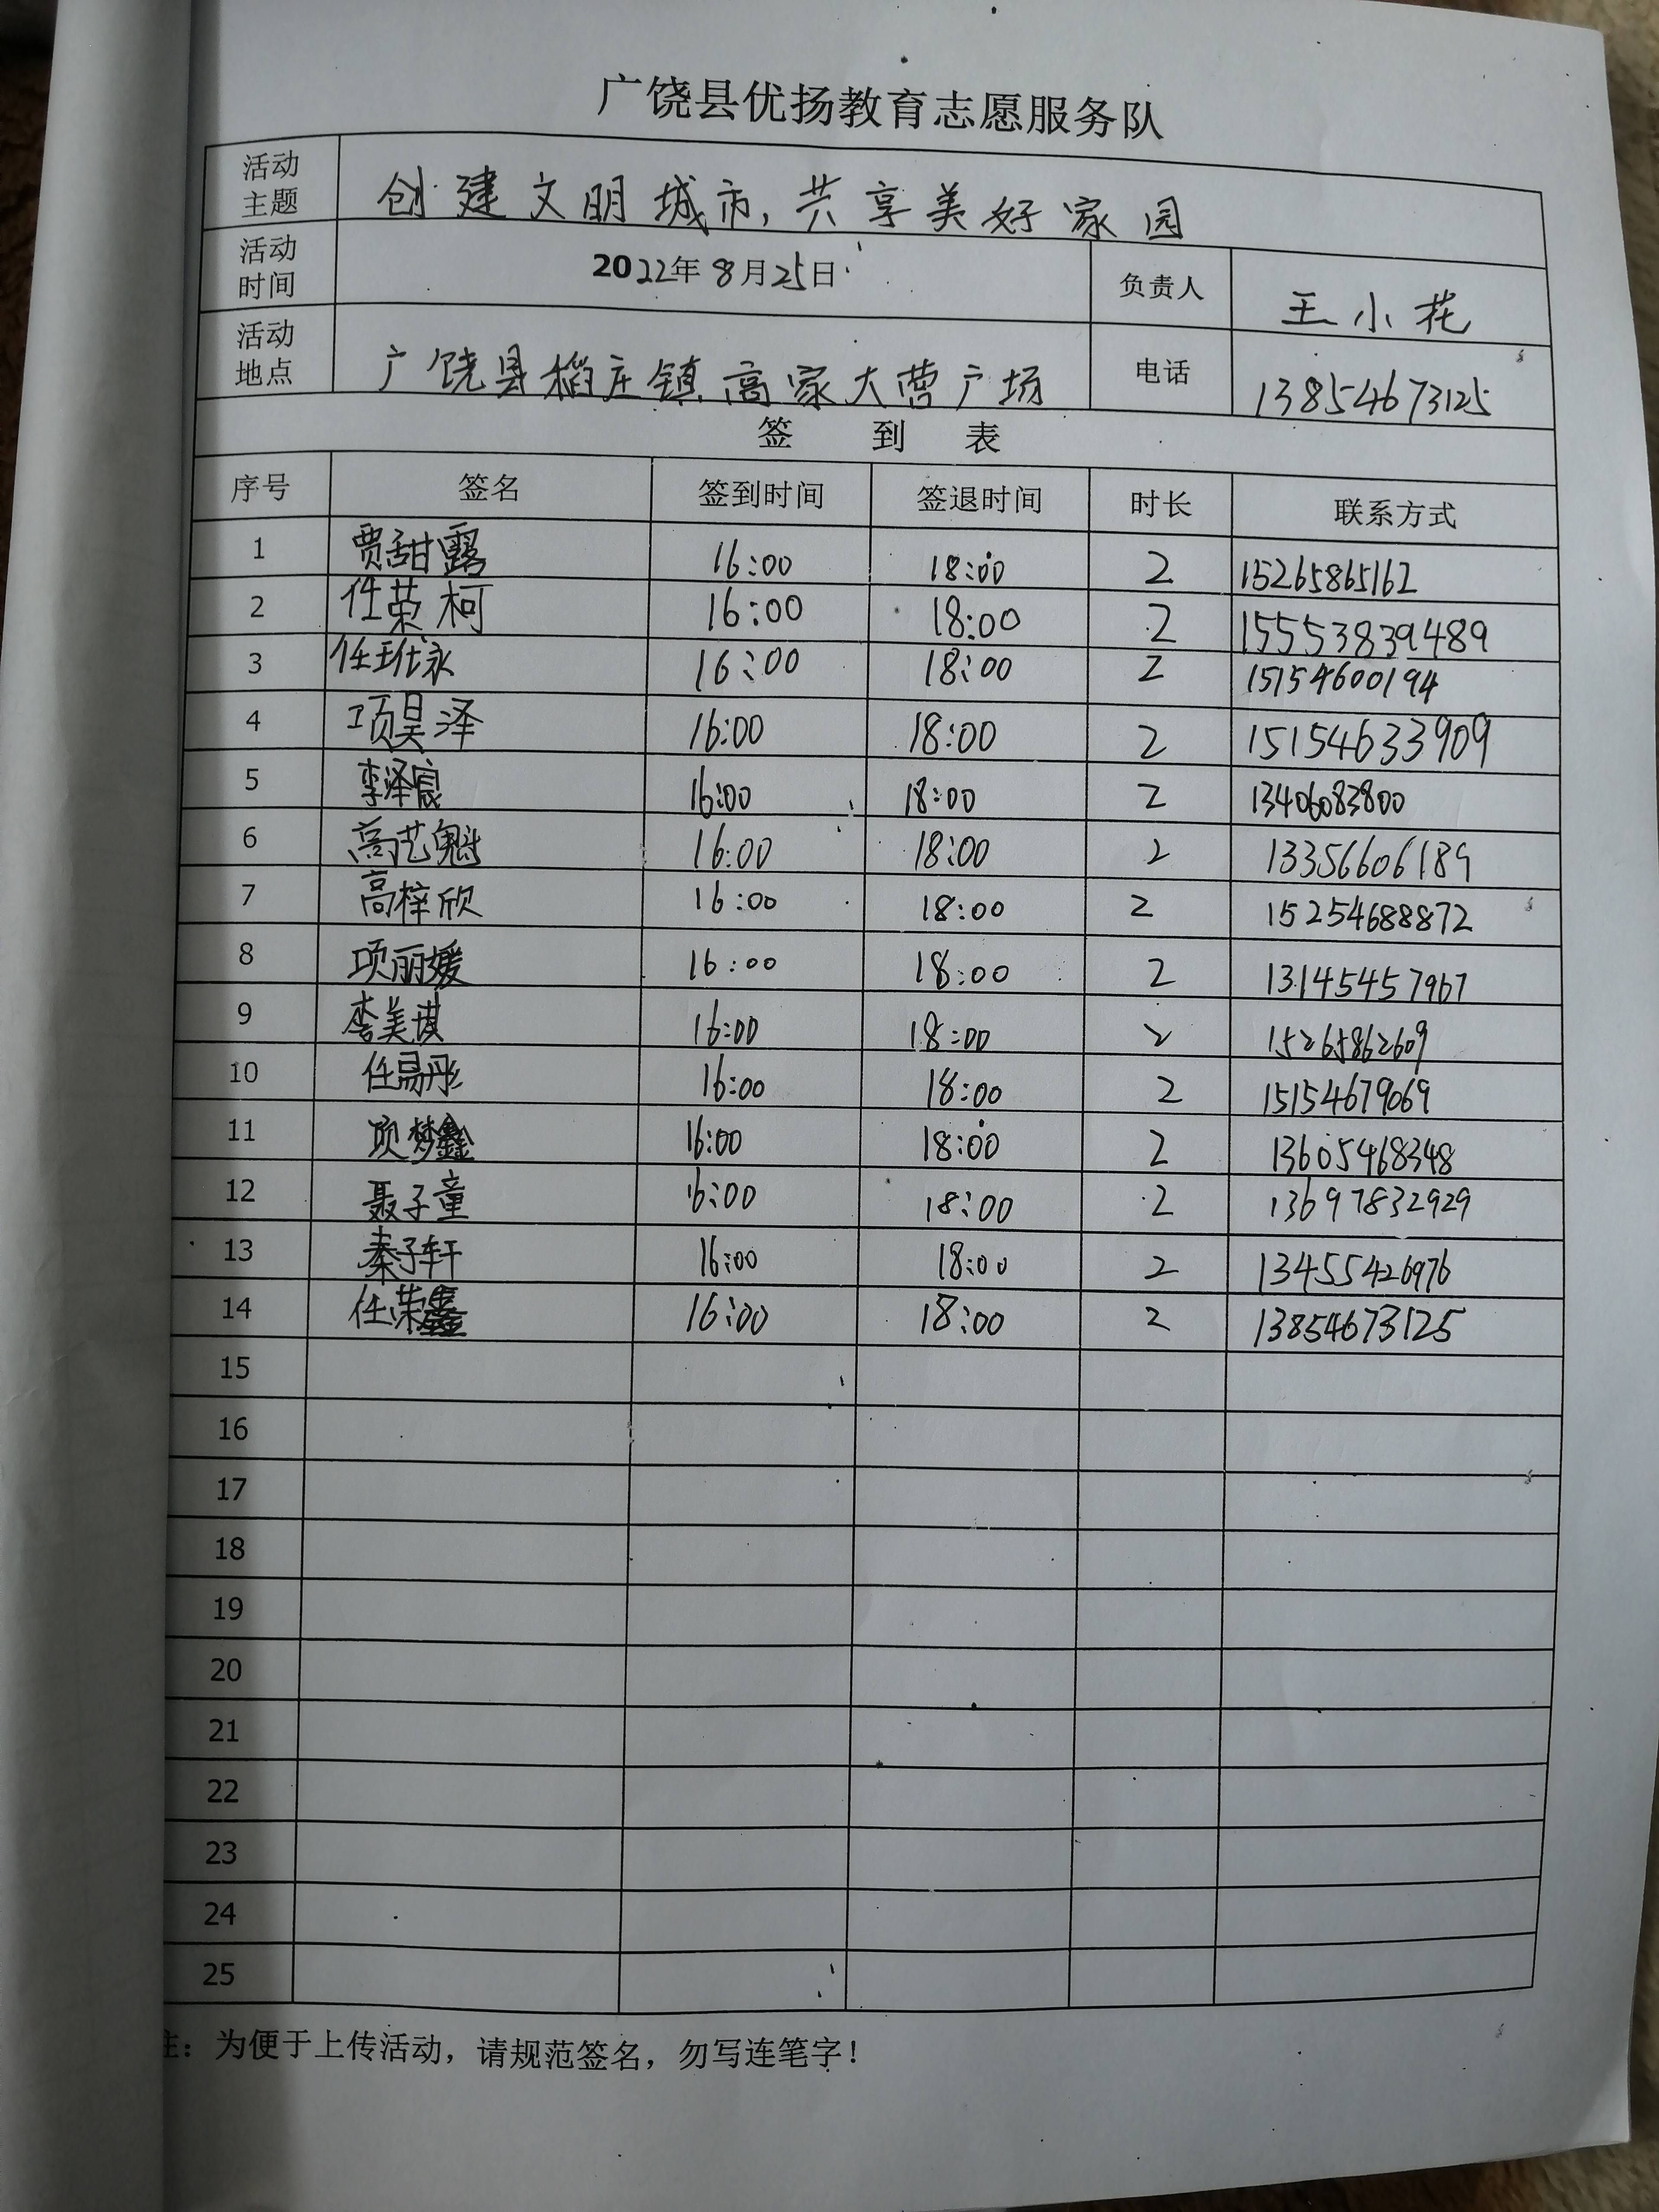 广饶县优扬教育志愿服务队
活动主题 创建文明城市,共享美好家园
活动时间 2022年8月25日 负责人 王小花
活动地点 广饶县稻庄镇高家大营广场 电话 13854673125
签到表
序号 签名 签到时间 签退时间 时长 联系方式
1 贾甜露 16:00 18:00 2 15265865162
2 任荣柯 16:00 18:00 2 15553839489
3 16:00 18:00 2 15154600194
4 项昊泽 16:00 18:00 2 15154633909
5 李泽宸 16:00 18:00 2 13406083800
6 高艺魁 16:00 18:00 2 13356606189
7 高梓欣 16:00 18:00 2 15254688872
8 项丽媛 16:00 18:00 2 13145457967
9 李美琪 16:00 18:00 2 15265862609
10 任易彤 16:00 18:00 2 15154679069
11 项梦鑫 16:00 18:00 2 13605468348
12 聂子童 16:00 18:00 2 13697832929
13 秦子轩 16:00 18:00 2 13455426976
14 任荣鑫 16:00 18:00 2 13854673125
15
16
17
18
19
20
21
22
23
24
25
注：为便于上传活动，请规范签名，勿写连笔字！